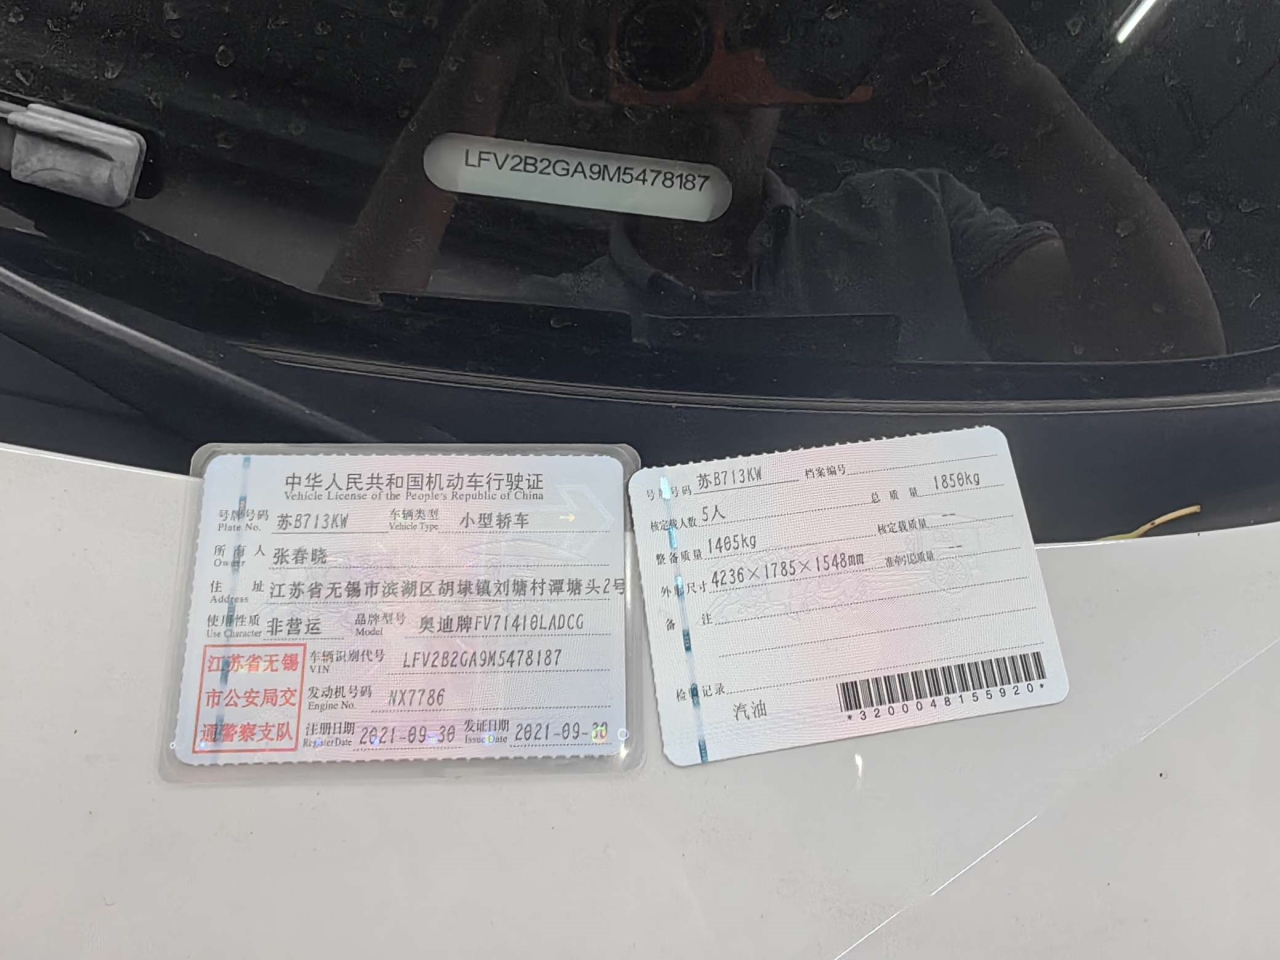 LFV2B2GA9M5478187
中华人民共和国机动车行驶证
Vehicle License of the People's Republic of China
号牌号码 Plate No. 苏B713KW 车辆类型 Vehicle Type 小型轿车
所有人 Owner 张春晓
住址 Address 江苏省无锡市滨湖区胡埭镇刘塘村潭塘头2号
使用性质 Use Character 非营运 品牌型号 Model 奥迪牌FV7141LADCG
车辆识别代号 VIN LFV2B2GA9M5478187
发动机号码 Engine No. NX7786
注册日期 Register Date 2021-09-30 发证日期 Issue Date 2021-09-30
江苏省无锡
市公安局交
通警察支队
号牌号码 苏B713KW 档案编号
核定载人数 5人 总质量 1850kg
整备质量 1405kg 核定载质量 --
外廓尺寸 4236×1785×1548mm 准牵引总质量 --
备注
检验记录
汽油
*3200048155920*